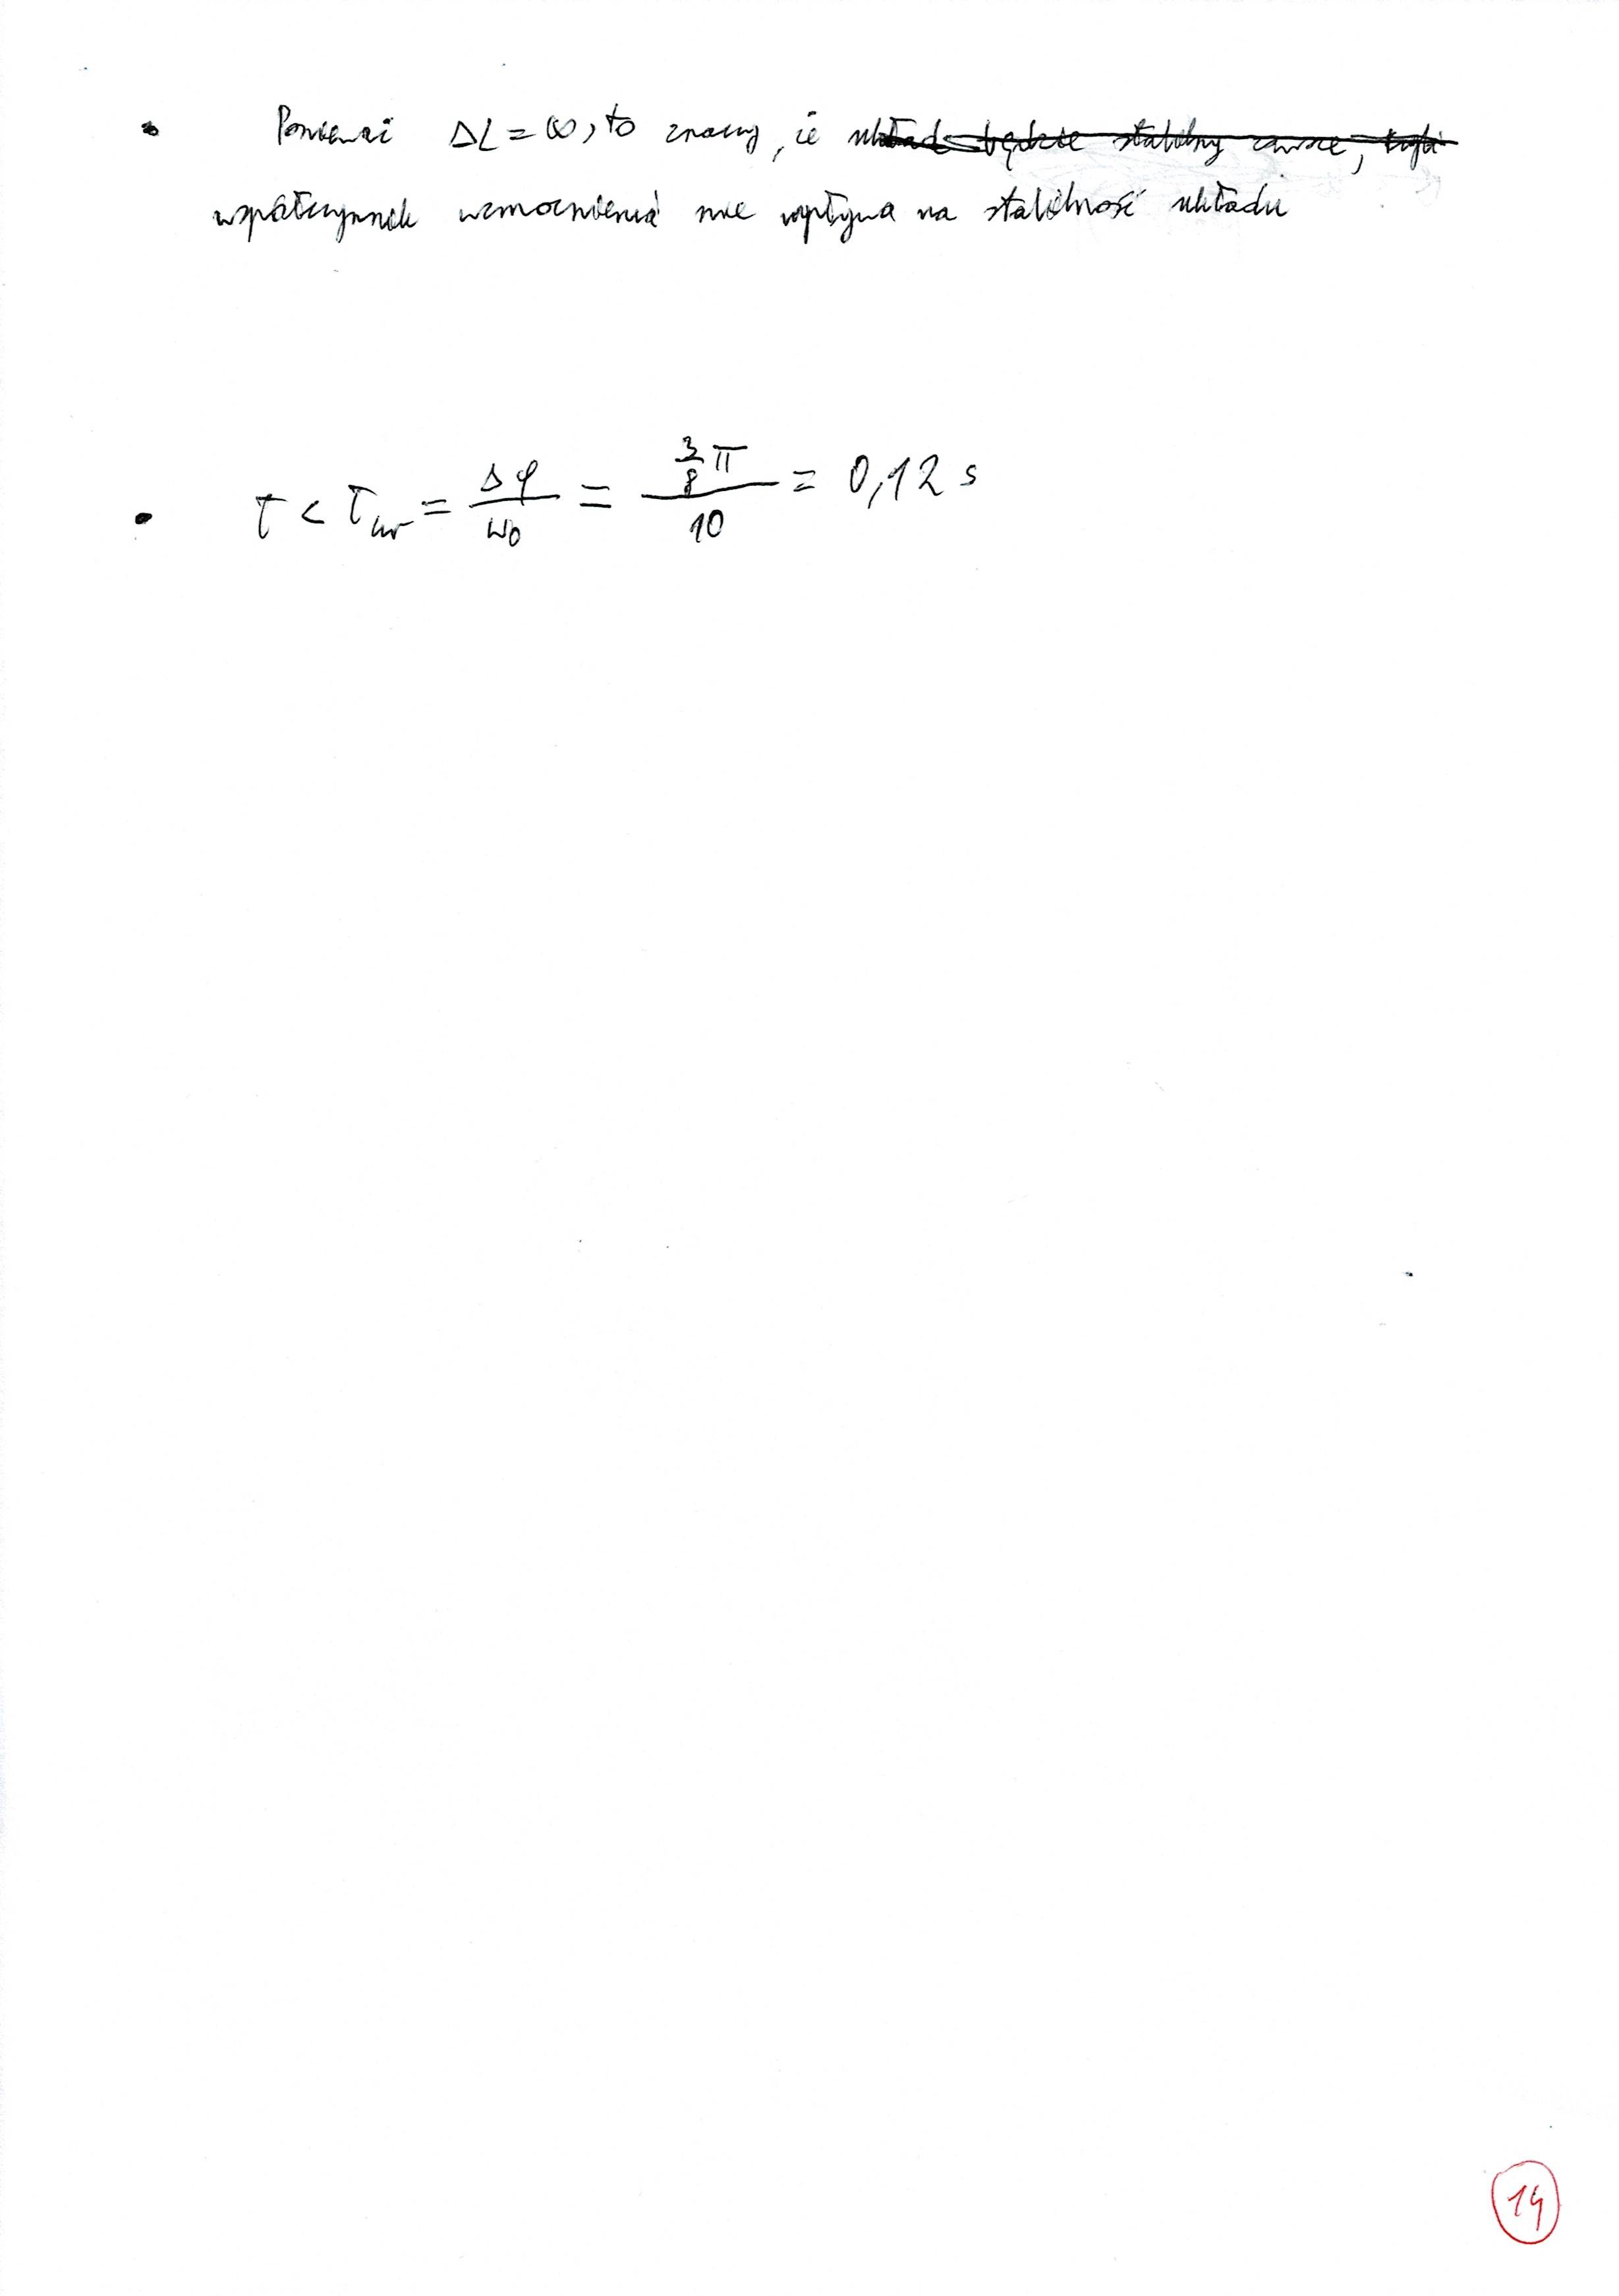 • Ponieważ ΔL = ∞, to znaczy, że układ będzie stabilny zawsze, czyli
współczynnik wzmocnienia nie wpływa na stabilność układu
• τ < τkr = Δφ/ω0 = (3/8 π)/10 = 0,12 s
14